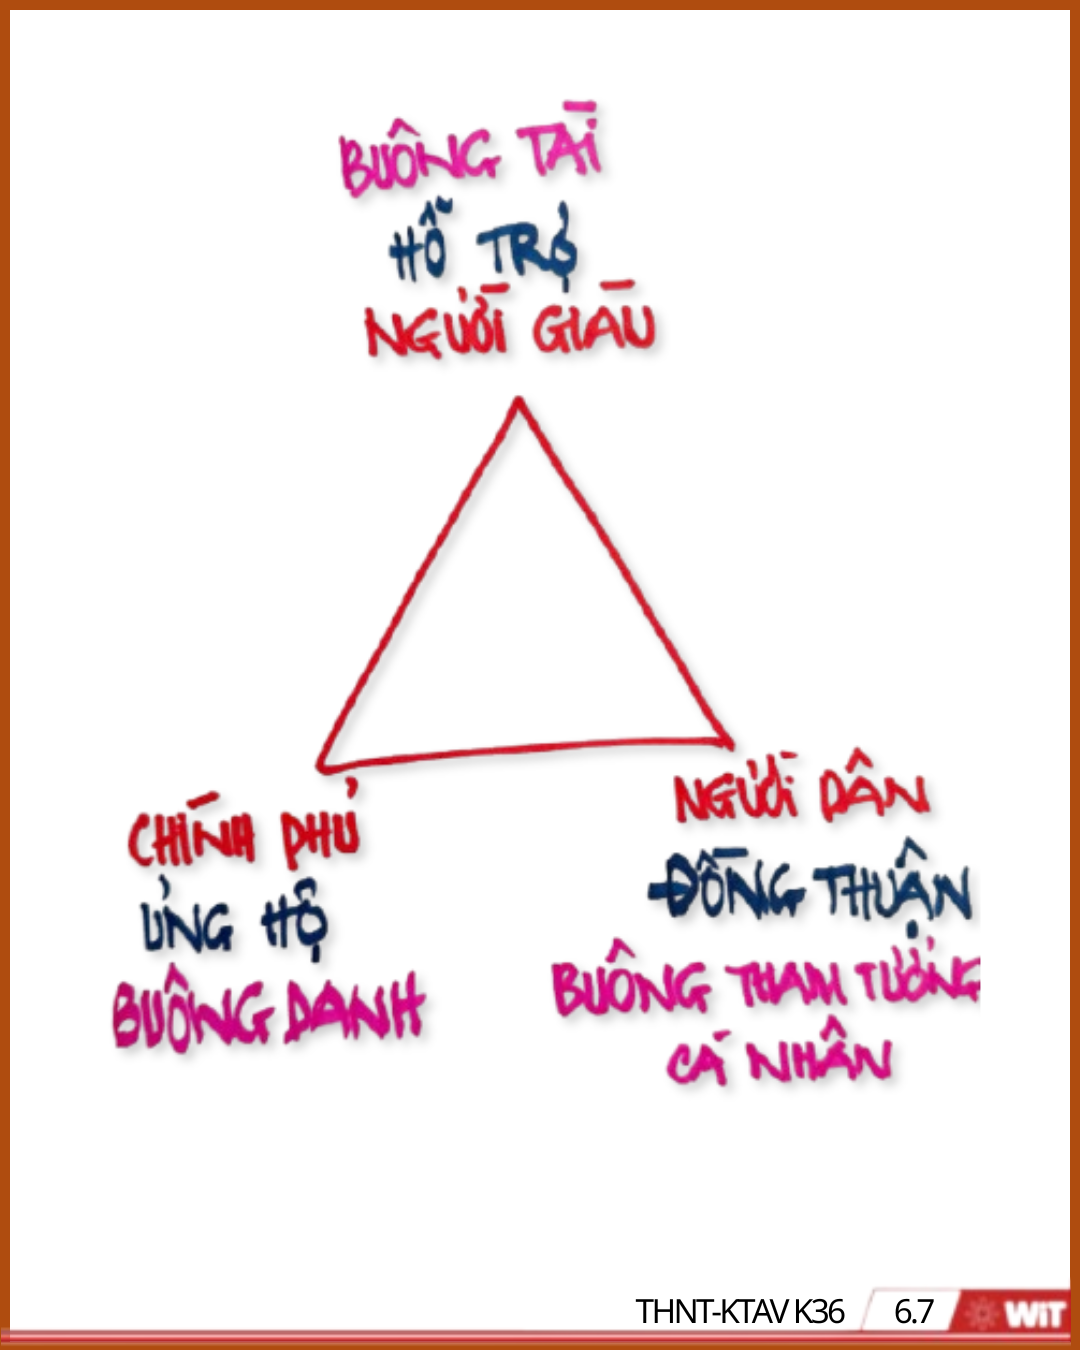 BUÔNG TÀI
HỖ TRỢ
NGƯỜI GIÀU
CHÍNH PHỦ
ỦNG HỘ
BUÔNG DANH
NGƯỜI DÂN
ĐỒNG THUẬN
BUÔNG THAM TƯỞNG
CÁ NHÂN
THNT-KTAV K36 6.7 WiT